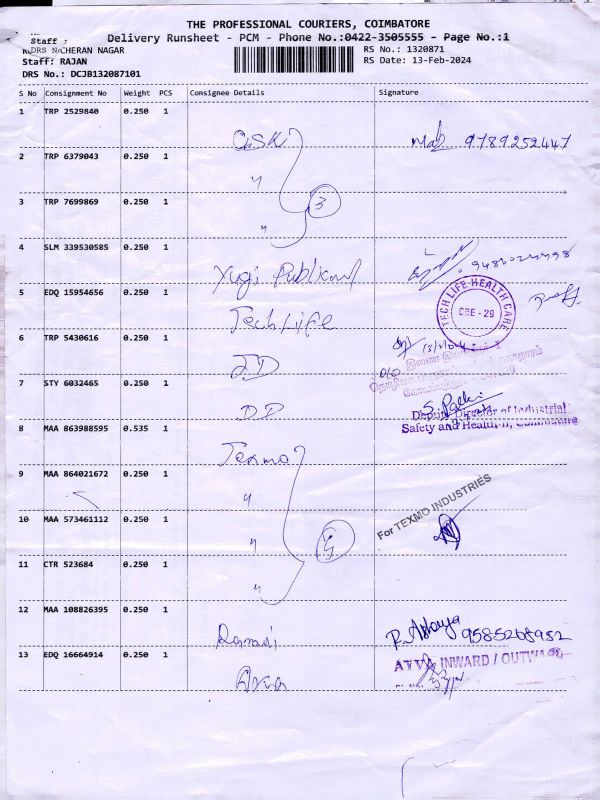 THE PROFESSIONAL COURIERS, COIMBATORE
Delivery Runsheet - PCM - Phone No.:0422-3505555 - Page No.:1
Staff :
DRS N CHERAN NAGAR
RS No.: 1320871
Staff: RAJAN
RS Date: 13-Feb-2024
DRS No.: DCJB132087101
S No Consignment No Weight PCS Consignee Details Signature
1 TRP 2529840 0.250 1
9789252447
2 TRP 6379043 0.250 1
"
3 TRP 7699869 0.250 1
3
"
4 SLM 339530585 0.250 1
Yugi
5 EDQ 15954656 0.250 1
Tech Life
TECH LIFE HEALTH CARE
CBE - 29
6 TRP 5430616 0.250 1
JD
7 STY 6032465 0.250 1
DD
Deputy Director of Industrial
Safety and Health-II, Coimbatore
8 MAA 863988595 0.535 1
Texmo
9 MAA 864021672 0.250 1
"
For TEXMO INDUSTRIES
10 MAA 573461112 0.250 1
"
11 CTR 523684 0.250 1
"
12 MAA 108826395 0.250 1
9585268952
13 EDQ 16664914 0.250 1
INWARD / OUTWARD